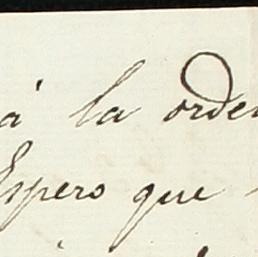 á la orden
Espero que